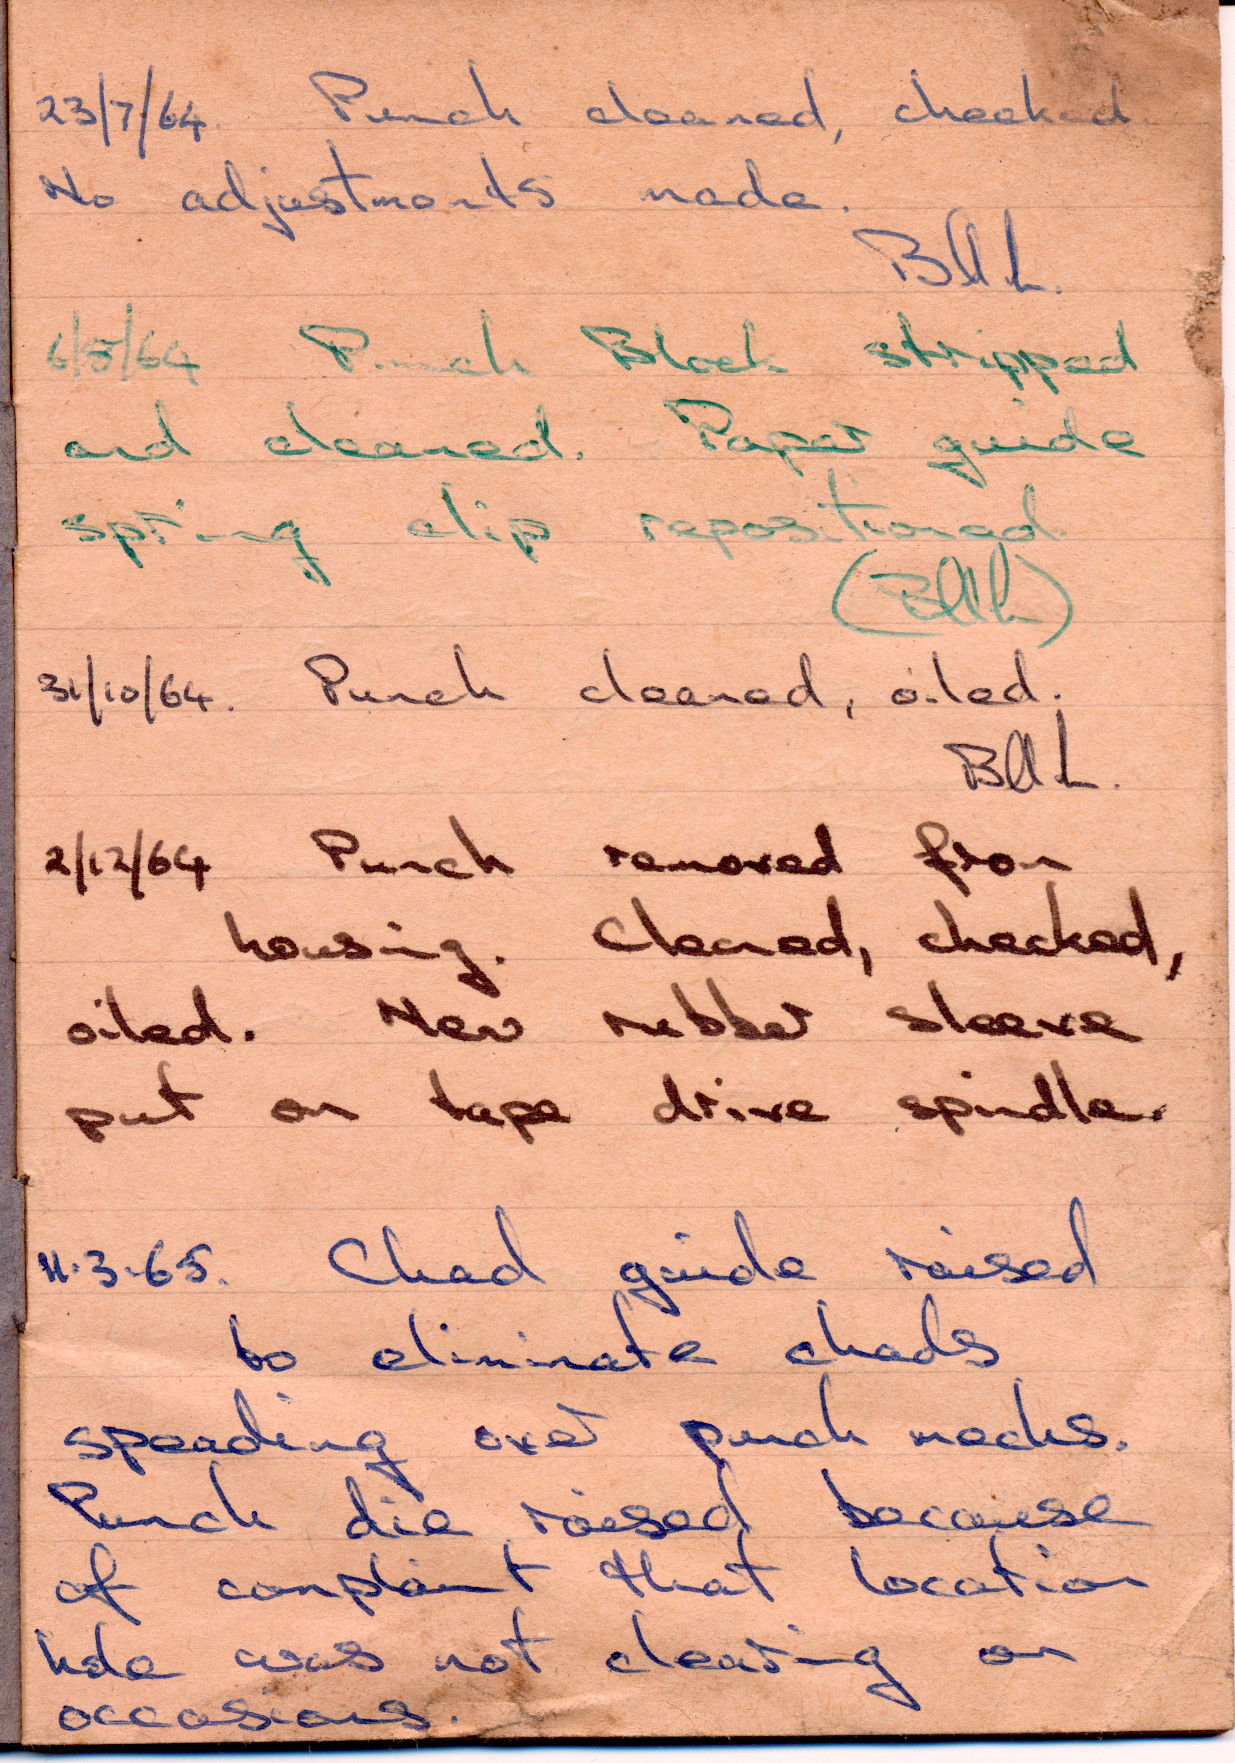 23/7/64. Punch cleaned, checked.
No adjustments made.
6/8/64 Punch Block stripped
and cleaned. Paper guide
spring clip repositioned.
31/10/64. Punch cleaned, oiled.
2/12/64 Punch removed from
housing. Cleaned, checked,
oiled. New rubber sleeve
put on tape drive spindle.
11.3.65. Chad guide raised
to eliminate chads
speading over punch mechs.
Punch die raised because
of complaint that location
hole was not clearing on
occasions.